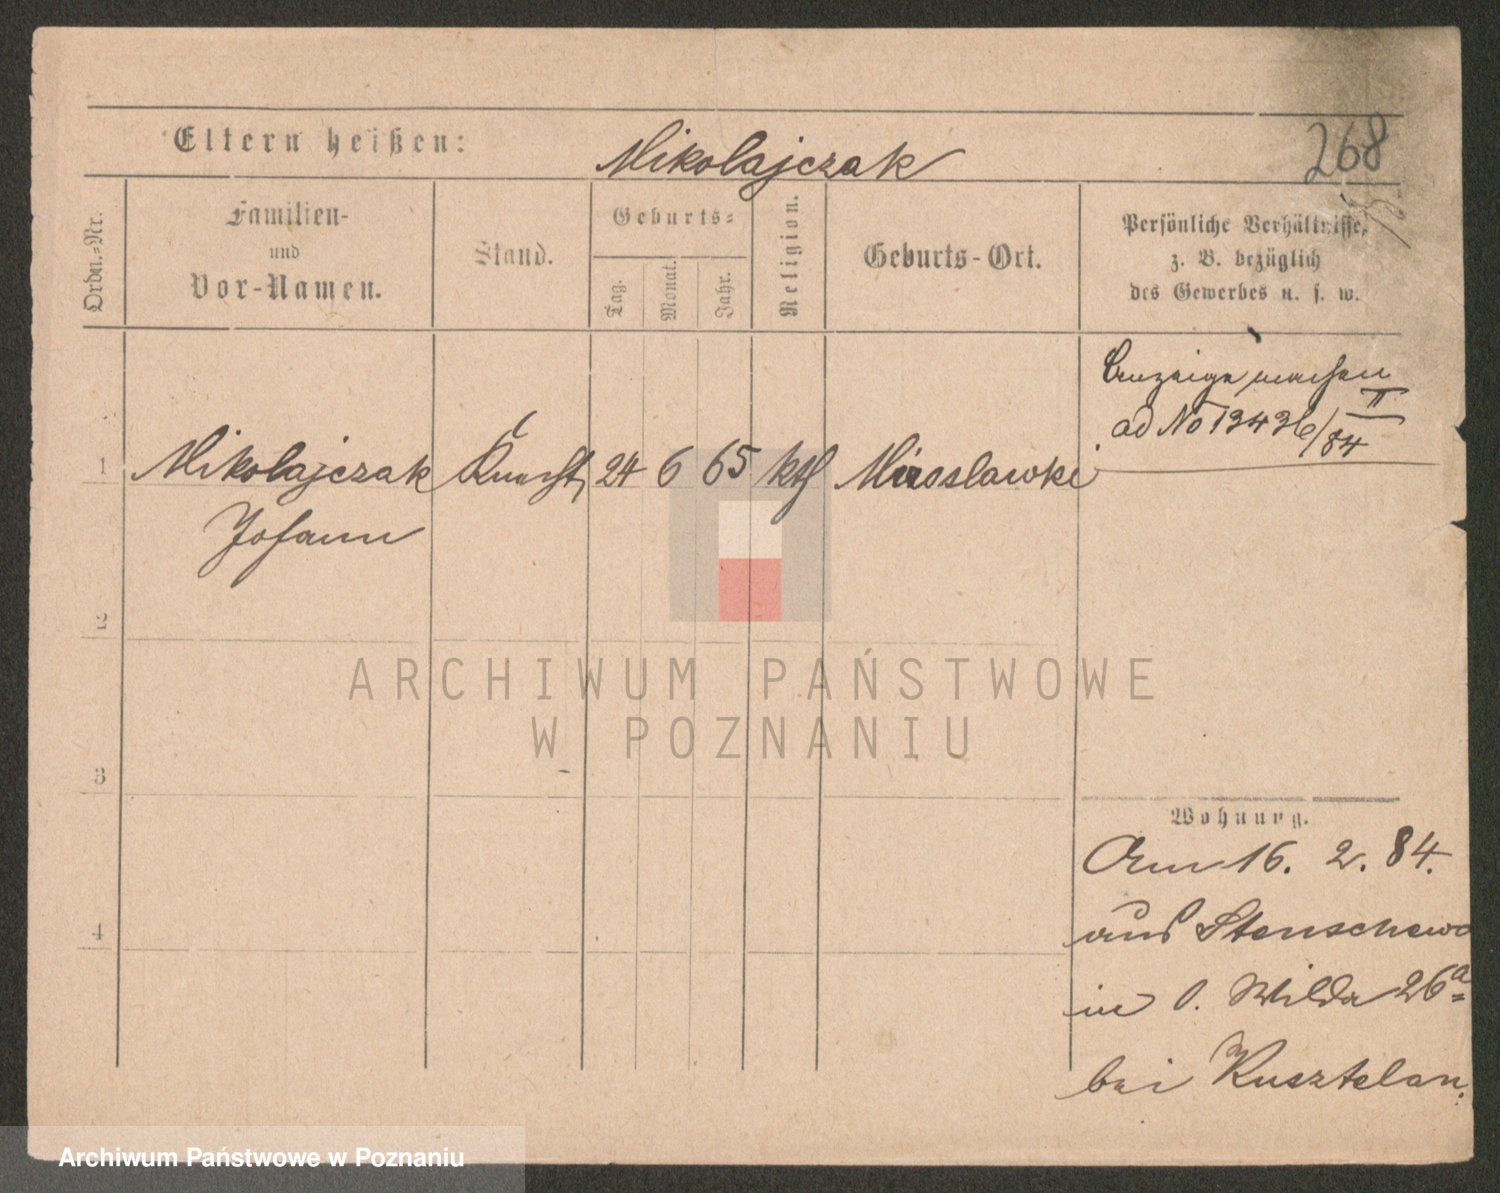 268
Eltern heißen: Mikolajczak
Ordn.-Nr.
Familien-
und
Vor-Namen.
Stand.
Geburts-
Tag.
Monat.
Jahr.
Religion.
Geburts-Ort.
Persönliche Verhältnisse,
z. B. bezüglich
des Gewerbes u. s. w.
Anzeige machen
II
ad No 13436/84
1 Mikolajczak Knecht 24 6 65 kth Miroslawki
Johann
2
3
4
Wohnung.
Am 16. 2. 84.
aus Stenschewo
in O. Wilda 26a
bei Kusztelan.
ARCHIWUM PAŃSTWOWE
W POZNANIU
Archiwum Państwowe w Poznaniu